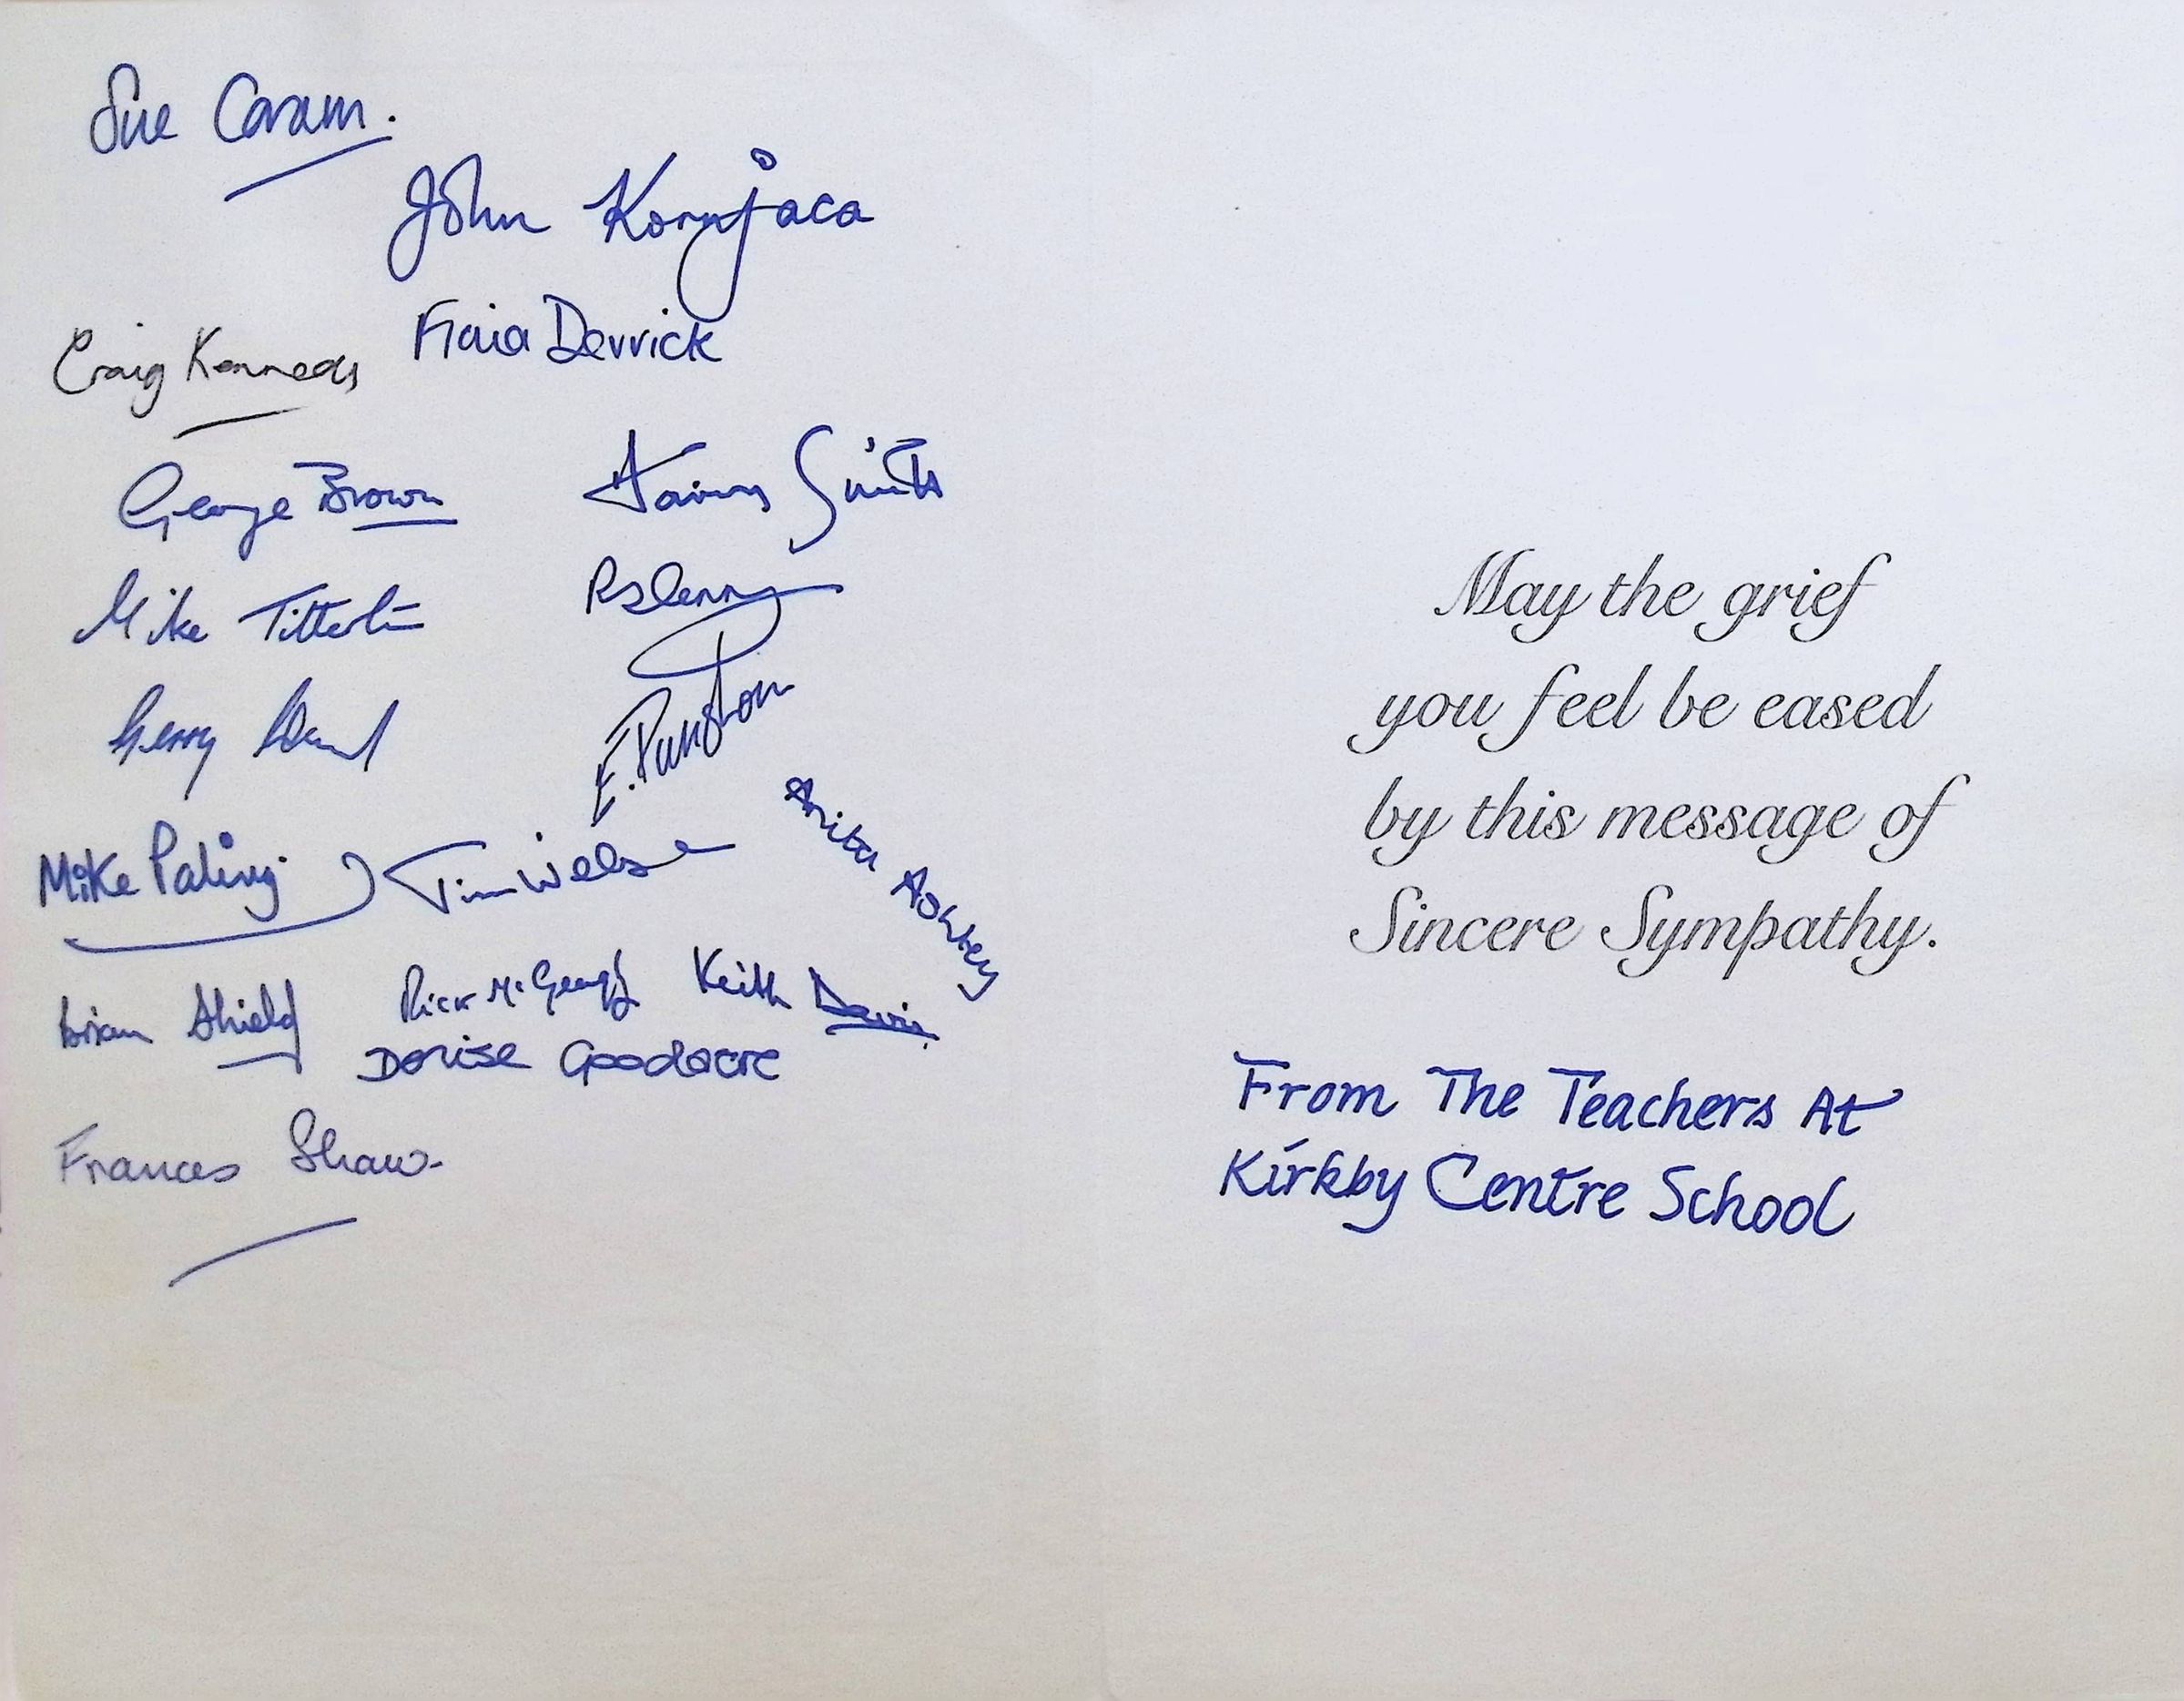 Sue Caram.
John Kornjaca
Craig Kennedy
Derrick
George Brown
James Smith
Mike
Gerry
E. Punshon
Mike Paling
Tim Wilson
Anita Ashley
Brian Shield
Rick
Keith Davis
Denise Goodacre
Frances Shaw
May the grief
you feel be eased
by this message of
Sincere Sympathy.
From The Teachers At
Kirkby Centre School